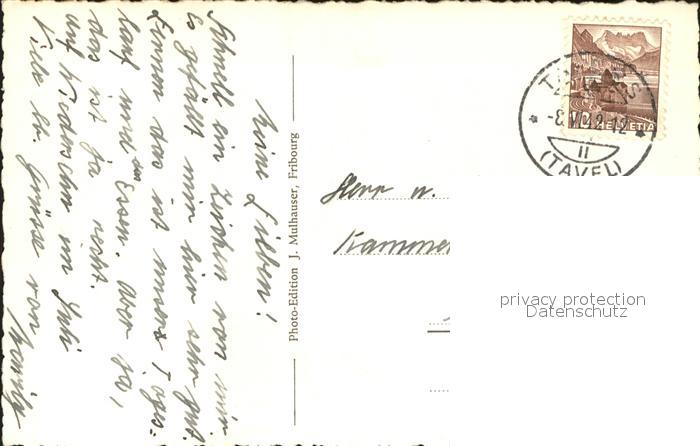 Meine Lieben!
Schnell ein Zeichen von mir.
Es gefällt mir hier sehr gut.
Lernen das ist unsere Tages=
lauf und Essen. Aber ja,
das ist ja recht.
auf Wiedersehn im Juli
Viele Grüsse von
Photo-Edition J. Mulhauser, Fribourg
Herr u.
10 HELVETIA
II
(TAVEL)
privacy protection
Datenschutz